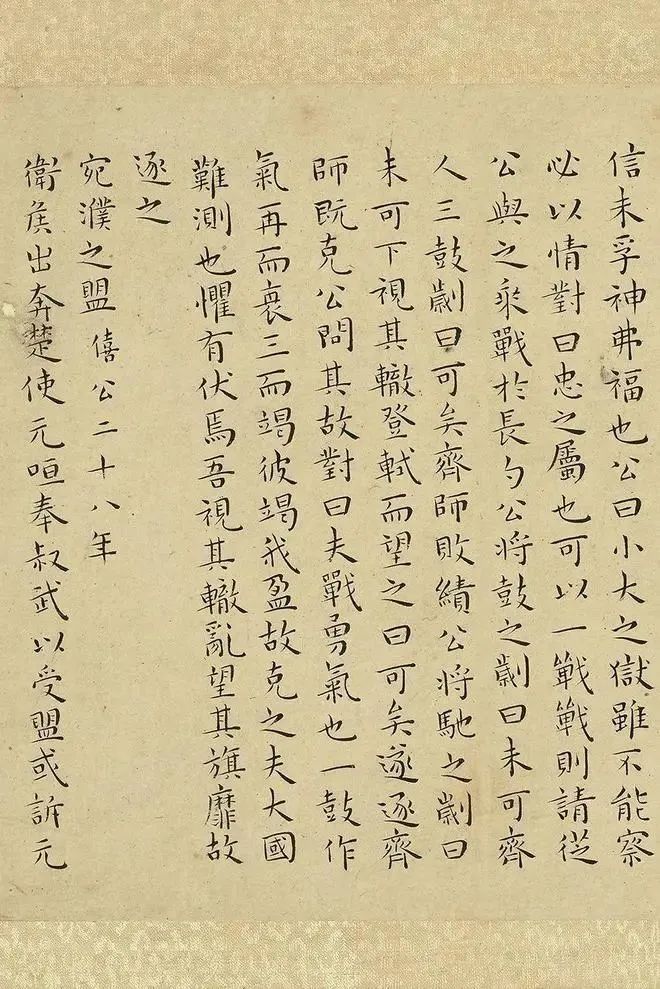 信未孚神弗福也公曰小大之獄雖不能察
必以情對曰忠之屬也可以一戰戰則請從
公與之乘戰於長勺公將鼓之劌曰未可齊
人三鼓劌曰可矣齊師敗績公將馳之劌曰
未可下視其轍登軾而望之曰可矣遂逐齊
師既克公問其故對曰夫戰勇氣也一鼓作
氣再而衰三而竭彼竭我盈故克之夫大國
難測也懼有伏焉吾視其轍亂望其旗靡故
逐之
宛濮之盟 僖公二十八年
衛侯出奔楚使元咺奉叔武以受盟或訴元